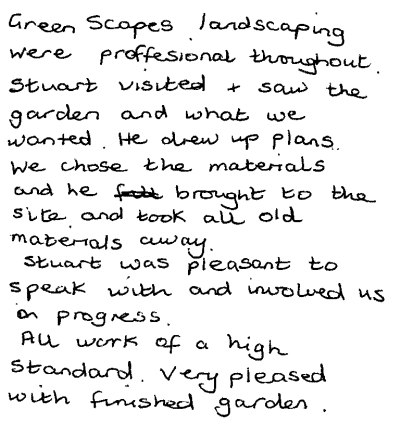 Green Scapes landscaping
were proffesional throughout.
Stuart visited + saw the
garden and what we
wanted. He drew up plans.
We chose the materials
and he brought to the
site and took all old
materials away.
Stuart was pleasant to
speak with and involved us
in progress.
All work of a high
standard. Very pleased
with finished garden.